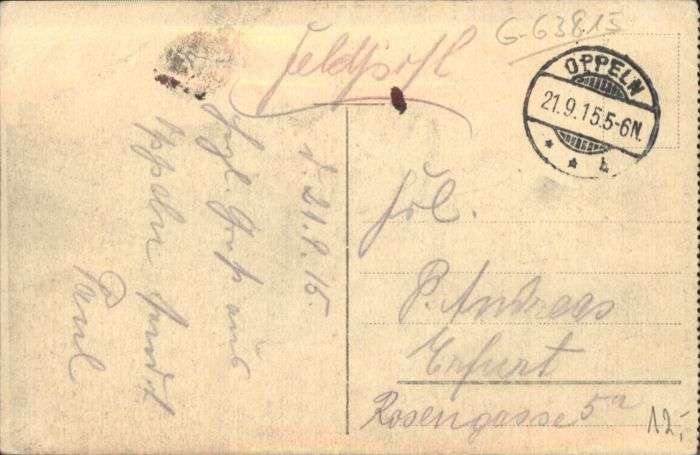 Feldpost
G-63815
OPPELN
21.9.15.5-6N.
* * b
d. 21.9.15.
Hzl. Gruß aus
Oppeln sendet
Paul.
Frl.
P. Andreas
Erfurt
Rosengasse 5a
12,-